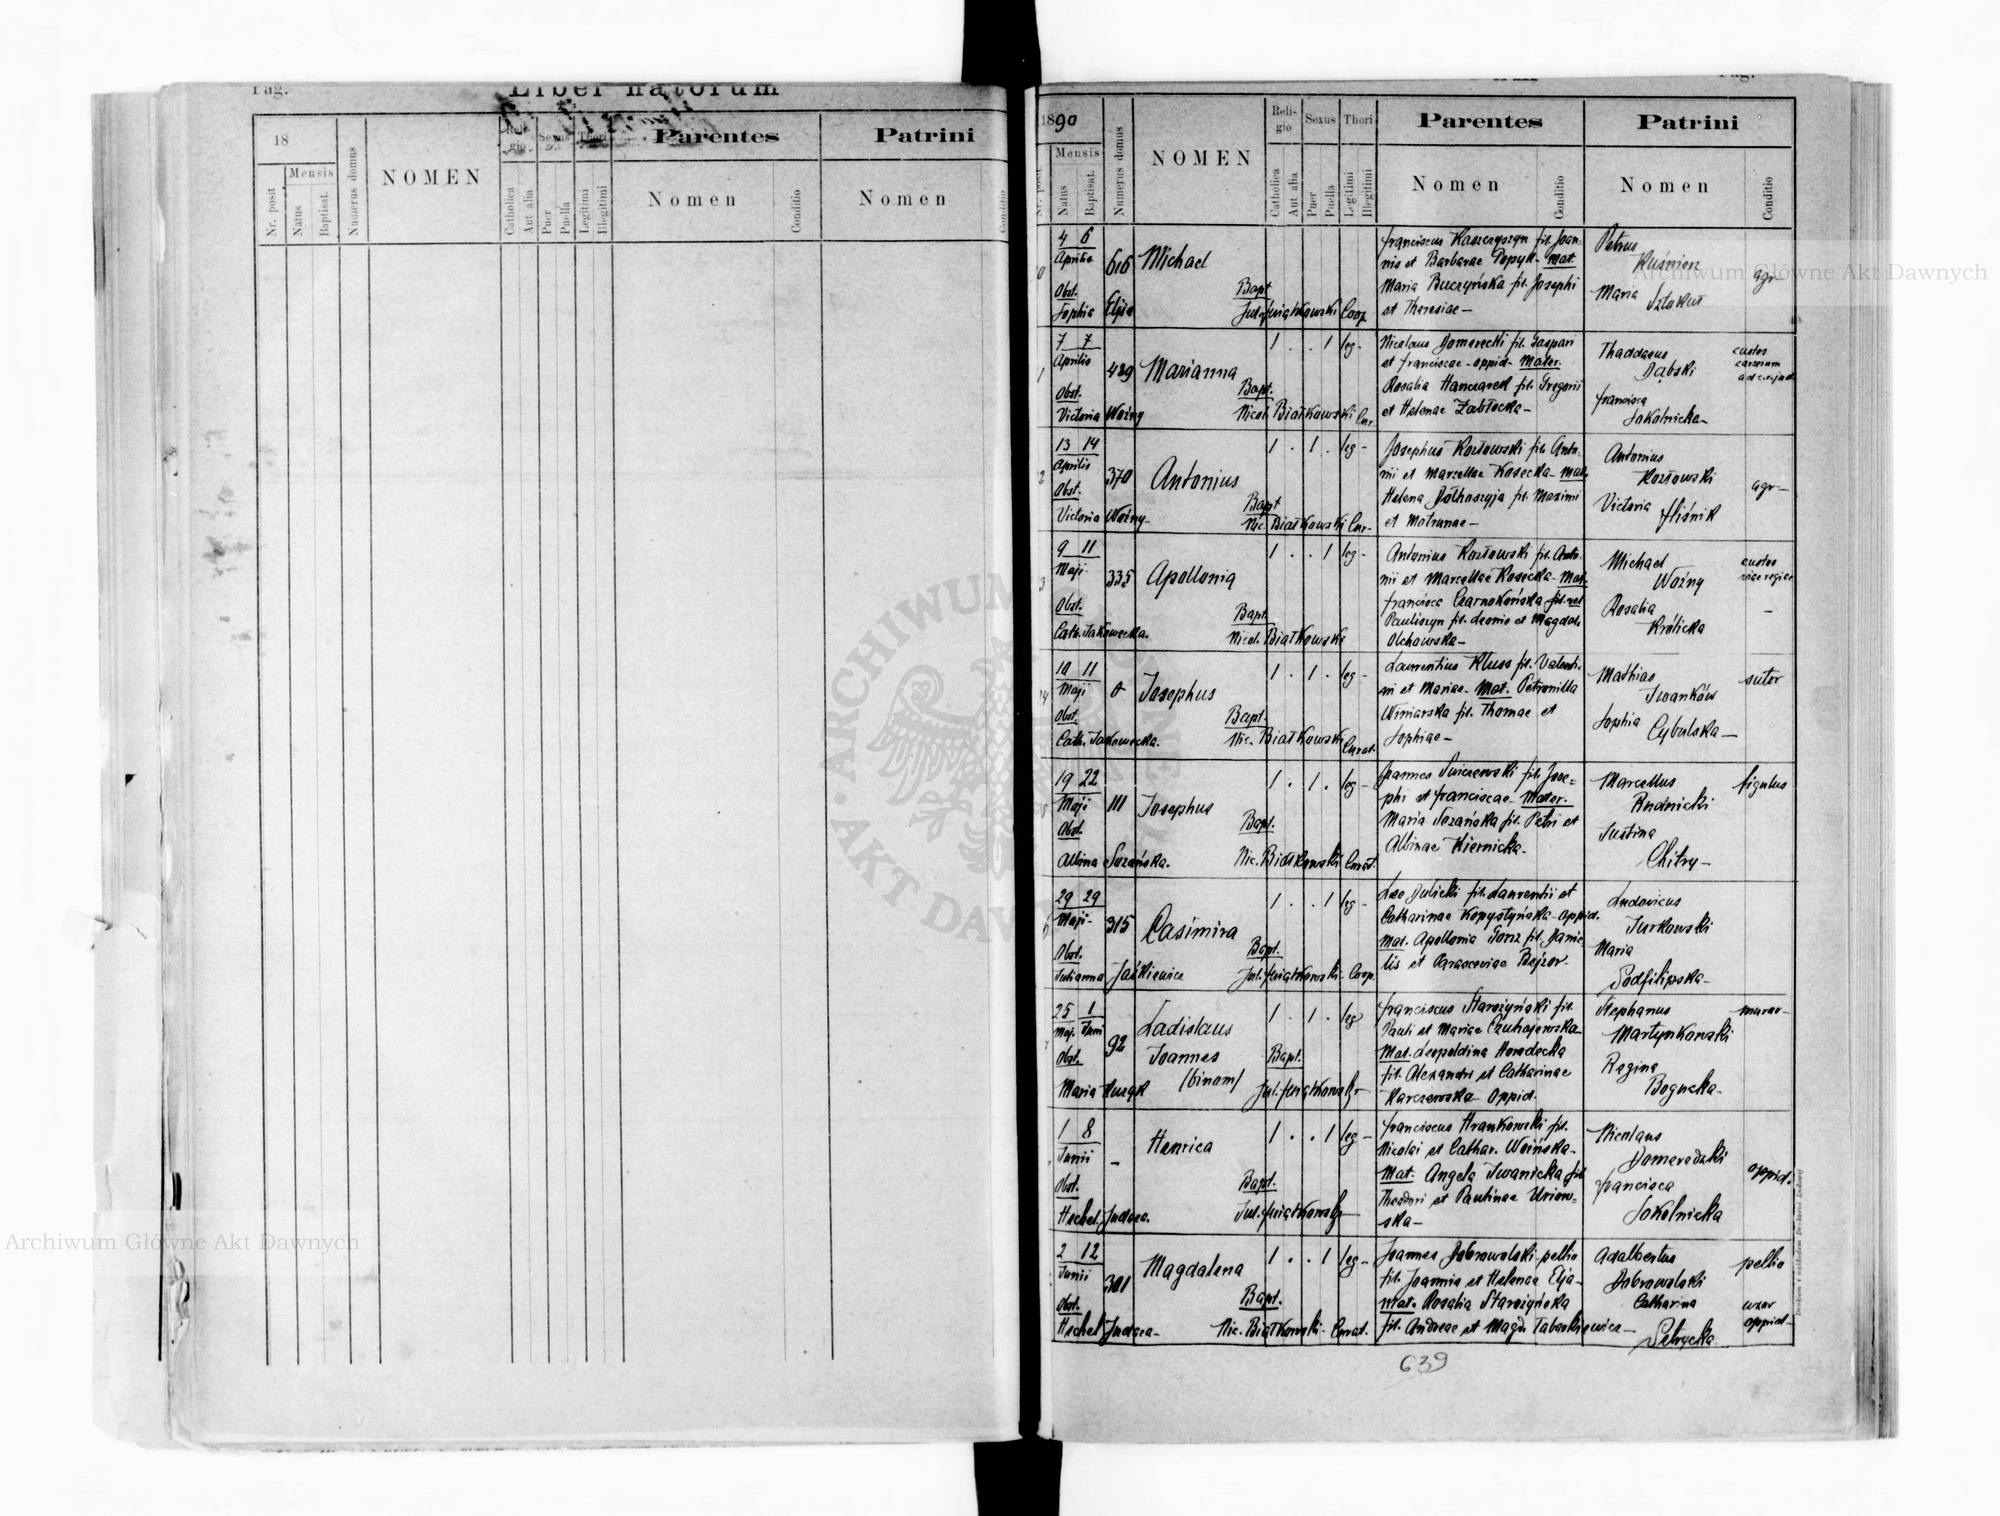 Pag.
Liber natorum
18
Mensis
Nr. posit
Natus
Baptisat.
Numerus domus
NOMEN
Reli-
gio
Sexus
Thori
Catholica
Aut alia
Puer
Puella
Legitimi
Illegitimi
Parentes
Nomen
Conditio
Patrini
Nomen
Pag.
1890
Mensis
Natus
Baptisat.
Numerus domus
NOMEN
Reli-
gio
Sexus
Thori
Catholica
Aut alia
Puer
Puella
Legitimi
Illegitimi
Parentes
Nomen
Conditio
Patrini
Nomen
Conditio
4 6
Aprilis
616
Michael
Obst.
Sophia Eljse
Bapt
Jul. Kwiatkowski Coop
Franciscus Kaszczyszyn fil. Joan-
nis et Barbarae Popyk - Mat.
Maria Buczyńska fil. Josephi
et Theresiae -
Petrus
Kuśnierz
agr-
Maria
Sztokus
7 7
Aprilis
489
Marianna
Obst.
Victoria Woźny
Bapt.
Nicol. Białkowski Cur
1 . . 1 leg-
Nicolaus Domerecki fil. Gaspari
et Franciscae - oppid- Mater.
Rosalia Hanczared fil. Gregorii
et Helenae Zabłocka -
Thaddaeus
Dąbski
custos
carcerum
Francisca
Sokolnicka-
13 14
Aprilis
370
Antonius
Obst.
Victoria Woźny-
Bapt
Nic. Białkowski Cur-
1 . 1 . leg-
Josephus Kozłowski fil. Anto-
nii et Marcellae Kosecka- Mat.
Helena Dołhoszyja fil. Maximi
et Matrunae -
Antonius
Kozłowski
agr-
Victoria
Hliśnik
9 11
Maji
335
Apollonia
Obst.
Cath. Jakowecka.
Bapt.
Nicol. Białkowski
1 . . 1 leg-
Antonius Kozłowski fil. Anto-
nii et Marcellae Kosecka- Mat.
Francisca Czarnokońska fil.
Pauliszyn fil. Leonis et Magdal.
Olchowska -
Michael
Woźny
custos
viae regiae
Rosalia
Królicka
10 11
Maji
Josephus
Obst.
Cath. Jakowecka.
Bapt.
Nic. Białkowski Curat.
1 . 1 . leg-
Laurentius Kluss fil. Valenti-
ni et Mariae- Mat. Petronilla
Winiarska fil. Thomae et
Sophiae -
Mathias
Iwanków
sutor
Sophia
Cybulska -
19 22
Maji
111
Josephus
Obst.
Albina Sozańska.
Bapt.
Nic. Białkowski Curat.
1 . 1 . leg-
Joannes Swiczewski fil. Jose-
phi et Franciscae- Mater.
Maria Sozańska fil. Petri et
Albinae Kiernicka-
Marcellus
Rudnicki
figulus
Justina
Chitry -
29 29
Maji-
315
Casimira
Obst.
Julianna Jaśkiewicz
Bapt.
Jul. Kwiatkowski- Coop.
1 . . 1 leg-
Leo Julicki fil. Laurentii et
Catharinae Kopystyńska- oppid.
Mat. Apollonia Gonz fil. Danie-
lis et Parasceviae Bejzor-
Ludovicus
Jurkowski
Maria
Podfilipska-
25 1
Maji Junii
92
Ladislaus
Joannes
/binom/
Obst.
Maria Huzak
Bapt.
Jul. Kwiatkowski
1 . 1 . leg
Franciscus Starożyński fil.
Pauli et Mariae Czuhajewska
Mat. Leopoldina Horodecka
fil. Alexandri et Catharinae
Karczewska- oppid.
Stephanus
Martynkowski
murar-
Regina
Bogucka-
1 8
Junii
-
Henrica
Obst.
Hechel Judaea.
Bapt.
Jul. Kwiatkowski
1 . . 1 leg-
Franciscus Hrankowski fil.
Nicolai et Cathar. Woińska-
Mat. Angela Iwanicka fil
Theodori et Paulinae Uniow-
ska-
Nicolaus
Domeradzki
oppid.
Francisca
Sokolnicka
2 12
Junii
301
Magdalena
Obst.
Hechel Judaea-
Bapt.
Nic. Białkowski- Curat.
1 . . 1 leg-
Joannes Dobrowolski- pellio
fil. Joannis et Helenae Elja-
Mat. Rosalia Starożyńska
fil. Andreae et Magd. Tabaskiewicz -
Adalbertus
Dobrowolski
pellio
Catharina
Petrycka
uxor
oppid-
639
Archiwum Główne Akt Dawnych
Archiwum Główne Akt Dawnych
ARCHIWUM GŁÓWNE AKT DAWNYCH